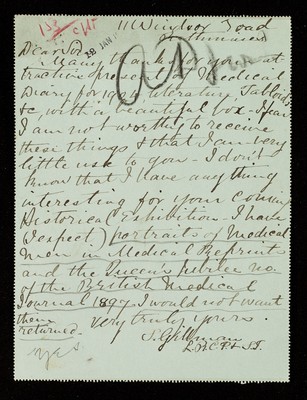 153 c/ff
11 Windsor Road
Dear Sir,
Many thanks for your at-
tractive present of Medical
Diary for 1904 literature, Tabloids
&c, with a beautiful box - I fear
I am not worthy to receive
these things & that I am very
little use to you - I don't
know that I have anything
interesting for your coming
Historical Exhibition - I have
(I expect) portraits of Medical
men in Medical Reprints
and the Queen's Jubilee no.
of the British Medical
Journal 1897 I would not want
them
returned.
Very truly yours.
S. Gillman
L.R.C.P.
yes